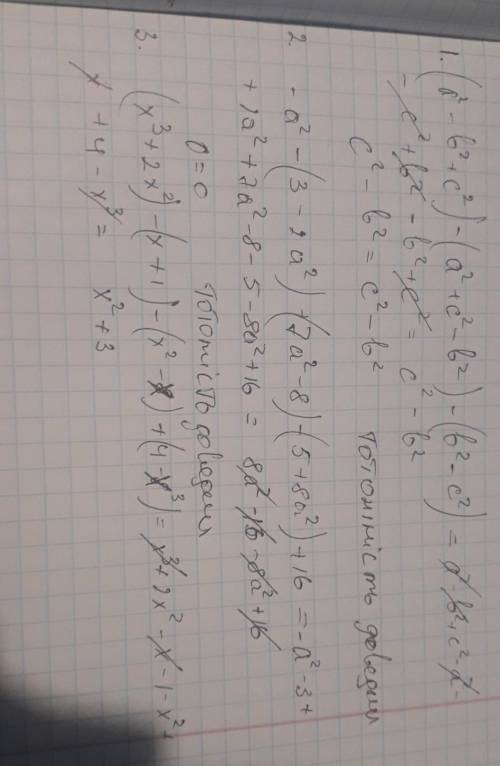 1. (a² - b² + c²) - (a² + c² - b²) - (b² - c²) = a² - b² + c² - a² -
- c² + b² - b² + c² = c² - b²
c² - b² = c² - b² тотожність доведена
2 - a² - (3 - 2a²) + (7a² - 8) - (5 + 8a²) + 16 = -a² - 3 +
+ 2a² + 7a² - 8 - 5 - 8a² + 16 = 8a² - 16 - 8a² + 16
0 = 0 тотожність доведена
3. (x³ + 2x²) - (x + 1) - (x² - x) + (4 - x³) = x³ + 2x² - x - 1 - x² +
x + 4 - x³ = x² + 3